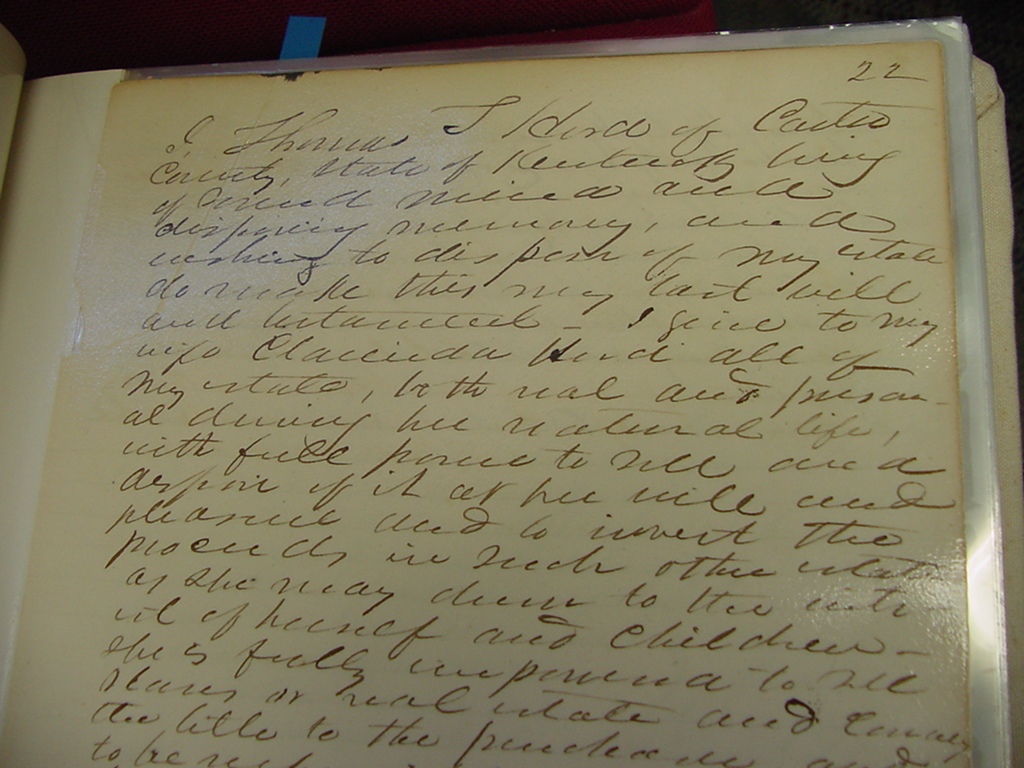 22
I, Thomas T Hord of Carter
County, State of Kentucky being
of sound mind and
disposing memory, and
wishing to dispose of my estate
do make this my last will
and testament – I give to my
wife Clarinda Hord all of
my estate, both real and person-
al during her natural life,
with full power to sell and
dispose of it at her will and
pleasure and to invest the
proceeds in such other estate
as she may deem to the inte-
rest of herself and Children –
She is fully empowered to sell
slaves or real estate and convey
the title to the purchaser and
to be